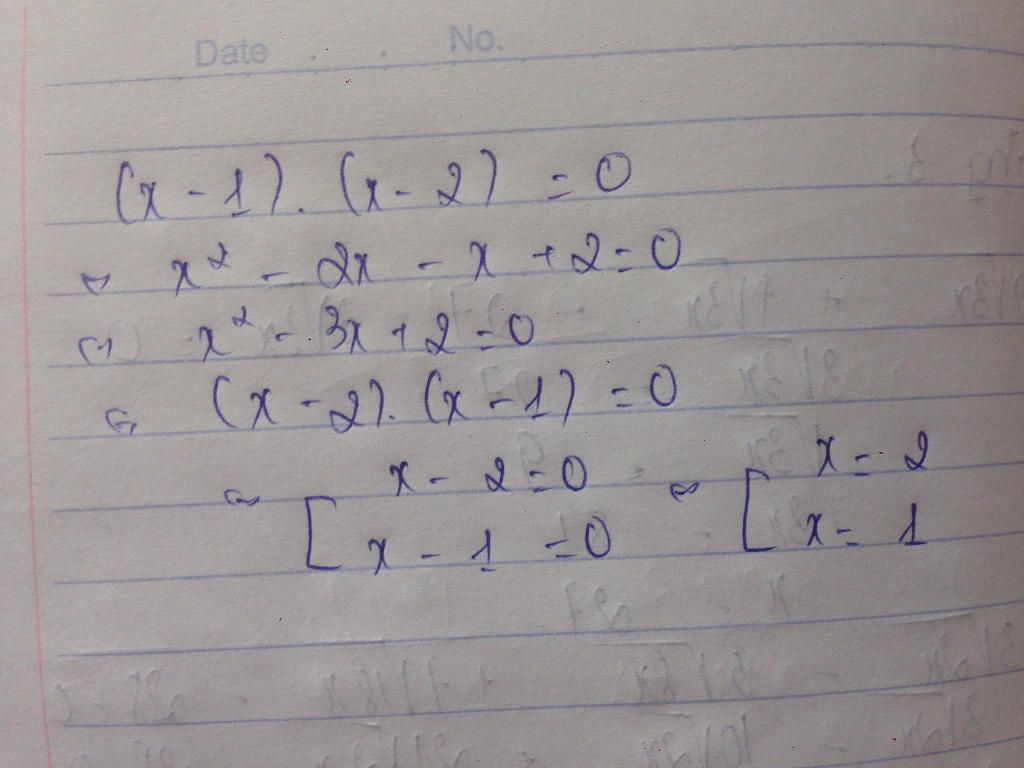 Date . . No.
(x - 1). (x - 2) = 0
⇔ x² - 2x - x + 2 = 0
⇔ x² - 3x + 2 = 0
⇔ (x - 2). (x - 1) = 0
⇔ [ x - 2 = 0 ⇔ [ x = 2
x - 1 = 0 x = 1